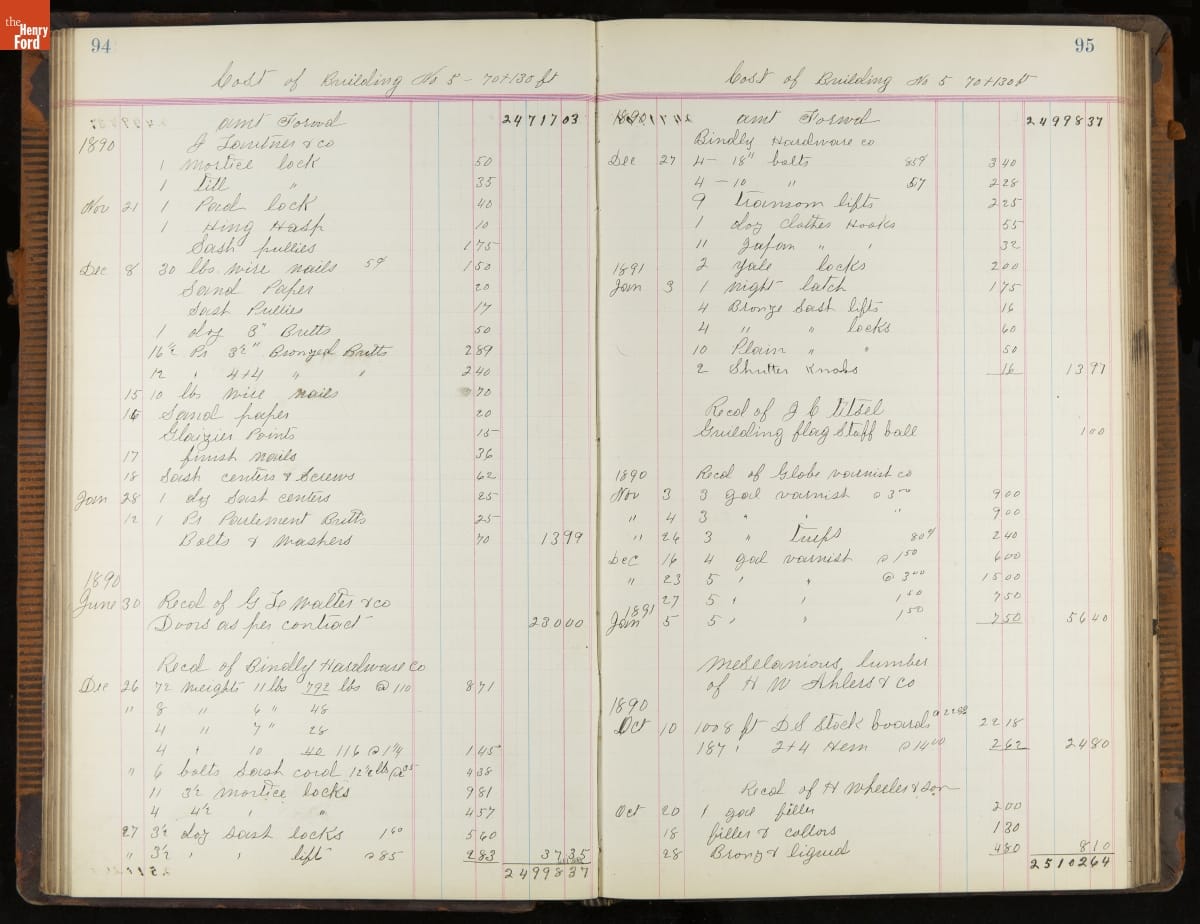 the Henry Ford
94
Cost of Building No 5 - 70+130 ft
amt Forwd 2471703
1890 J Lantner & co
1 Mortice lock 50
1 till " 35
Nov 21 1 Pad lock 40
1 Hing Hasp 10
Sash pullies 175
Dec 8 30 lbs wire nails 5¢ 150
Sand Paper 20
Sash Pullies 17
1 doz 3" Butts 50
16½ Pr 3½" Bronzed Butts 289
12 " 4+4 " " 240
15 10 lbs wire nails 70
16 Sand paper 20
Glaizier Points 15
17 finish nails 36
18 Sash centers & Screws 62
Jan 28 1 doz Sast centers 25
12 1 Pr Parlement Butts 25
Bolts & Washers 70 1399
1890
June 30 Recd of G Le Walter & co
Doors as per contract 23000
Recd of Bindly Hardware co
Dec 26 72 Weights 11 lbs 792 lbs @ 110 871
" 8 " 6 " 48
4 " 7 " 28
4 " 10 40 116 @ 1¼ 145
" 6 bolts Sash cord 12½ lbs @ 35 438
11 3½ Mortice locks 981
4 4½ " " 457
27 3½ doz Sast locks 160 560
" 3½ " " lift @ 85 283 3735
2499837
95
Cost of Building No 5 70+130 ft
1890 amt Forwd 2499837
Bindly Hardware co
Dec 27 4 - 18" bolts 85¢ 340
4 - 10 " 57 228
9 transom lifts 225
1 doz clothes Hooks 55
11 Japan " " 32
1891 2 Yale locks 200
Jan 3 1 night latch 175
4 Bronze Sast lifts 16
4 " " locks 60
10 Plain " " 50
2 Shutter Knobs 16 1397
Recd of J C Titsel
Guielding flag Staff ball 100
1890 Recd of Globe varnist co
Nov 3 3 gal varnist @ 300 900
" 4 3 " " " 900
" 26 3 " turps 80¢ 240
Dec 16 4 gal varnist @ 150 600
" 23 5 " " @ 300 1500
27 5 " " 150 750
1891
Jan 5 5 " " 150 750 5640
Meselanious lumber
of H W Ahlers & co
1890
Oct 10 1008 ft D S Stock boards @ 2200 2218
187 " 2+4 Hem @ 1400 262 2480
Recd of H Wheeler & son
Oct 20 1 gal filler 200
18 filler & collors 130
28 Bronz & liquid 480 810
2510264